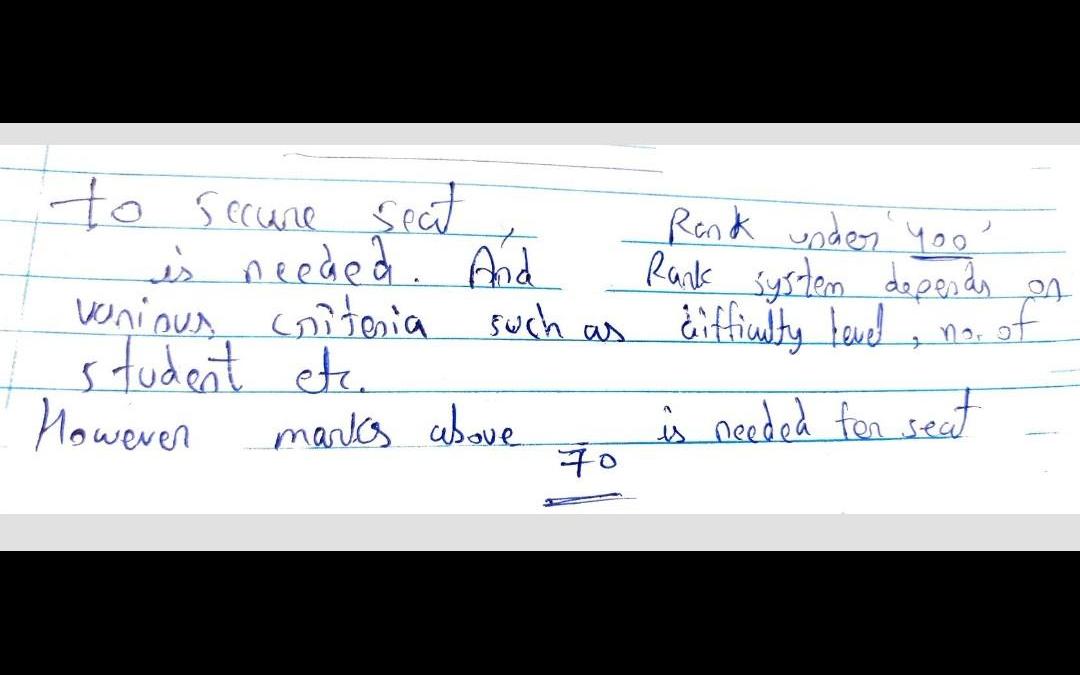 to secure seat, Rank under '400'
is needed. And Rank system depends on
various criteria such as difficulty level, no. of
student etc.
However marks above 70 is needed for seat